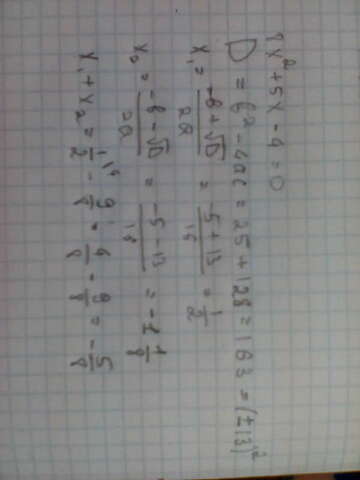 8x²+5x-9=0
D = b²-4ac = 25+128 = 163 = (±13)²
x₁ = (-b+√D)/2a = (-5+13)/16 = 1/2
x₂ = (-b-√D)/2a = (-5-13)/16 = -1 1/8
x₁+x₂ = 1/2 - 9/8 = 4/8 - 9/8 = -5/8